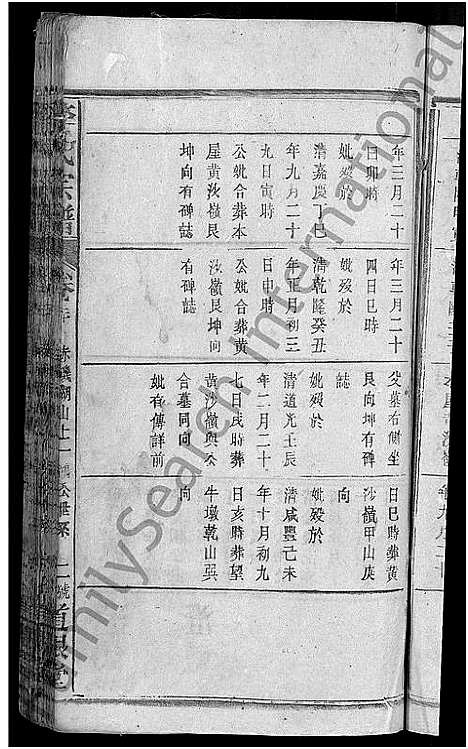 年三月二十
日卯時
妣歿於
清嘉慶丁巳
年九月二十
九日寅時
公妣合葬本
屋黄沙嶺艮
坤向有碑誌
年三月二十
四日巳時
妣歿於
清乾隆癸丑
年正月初三
日申時
公妣合葬黄
沙嶺艮坤向
有碑誌
父墓右側坐
艮向坤有碑
誌
妣歿於
清道光壬辰
年二月二十
七日戌時葬
黄沙嶺與公
合墓同向
妣有傳詳前
日巳時葬黄
沙嶺甲山庚
向
妣歿於
清咸豐己未
年十月初九
日亥時葬望
牛墩乾山巽
向
李氏宗譜
FamilySearch International